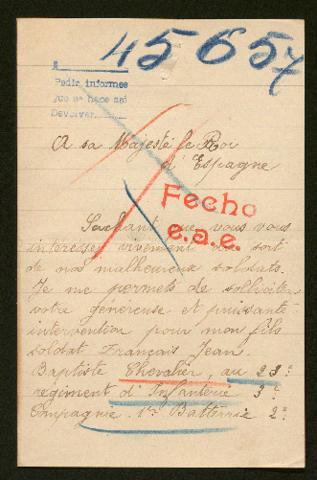 45657
Pedir informes
que se hace así
Devolver
A sa Majesté le Roi
d'Espagne
Fecho
e.a.e.
Sachant que vous vous
intéressez vivement au sort
de nos malheureux soldats.
Je me permets de solliciter
votre généreuse et puissante
intervention pour mon fils
soldat Français Jean.
Baptiste Chevalier, au 23e
regiment d'Infanterie 3e
Compagnie 1re Batterie 2e